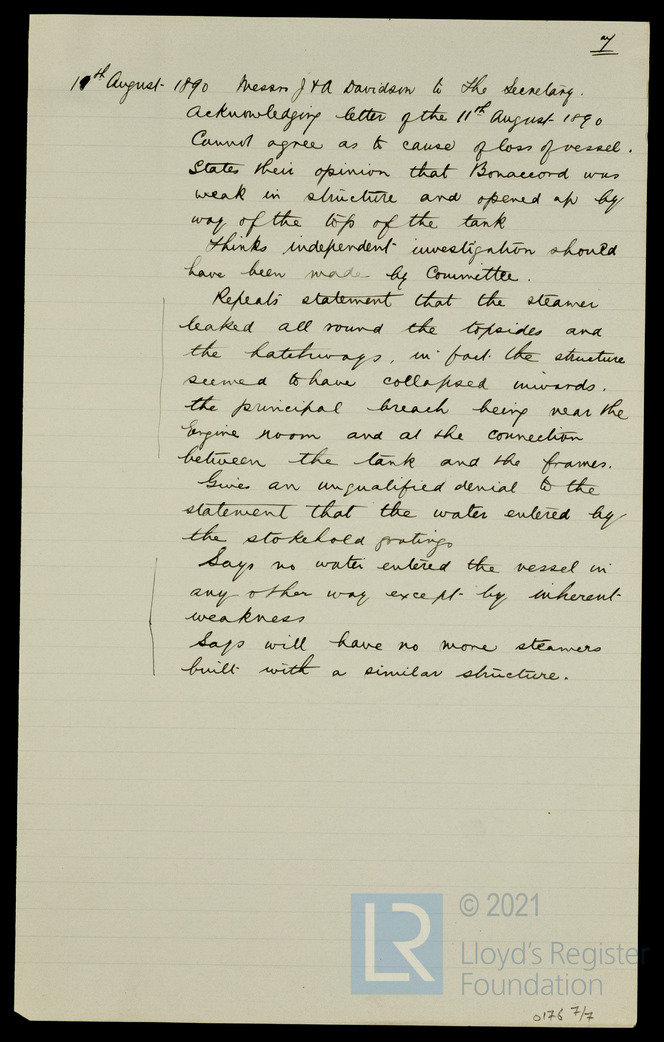 7
19th August 1890 Messrs J & A Davidson to the Secretary.
Acknowledging letter of the 11th August 1890
Cannot agree as to cause of loss of vessel.
States their opinion that Bonaccord was
weak in structure and opened up by
way of the top of the tank
Thinks independent investigation should
have been made by Committee.
Repeats statement that the steamer
leaked all round the topsides and
the hatchways, in fact the structure
seemed to have collapsed inwards.
the principal breach being near the
Engine room and at the connection
between the tank and the frames.
Gives an unqualified denial to the
statement that the water entered by
the stokehold gratings
Says no water entered the vessel in
any other way except by inherent
weakness
Says will have no more steamers
built with a similar structure.
LR © 2021
Lloyd's Register
Foundation
0176 7/7